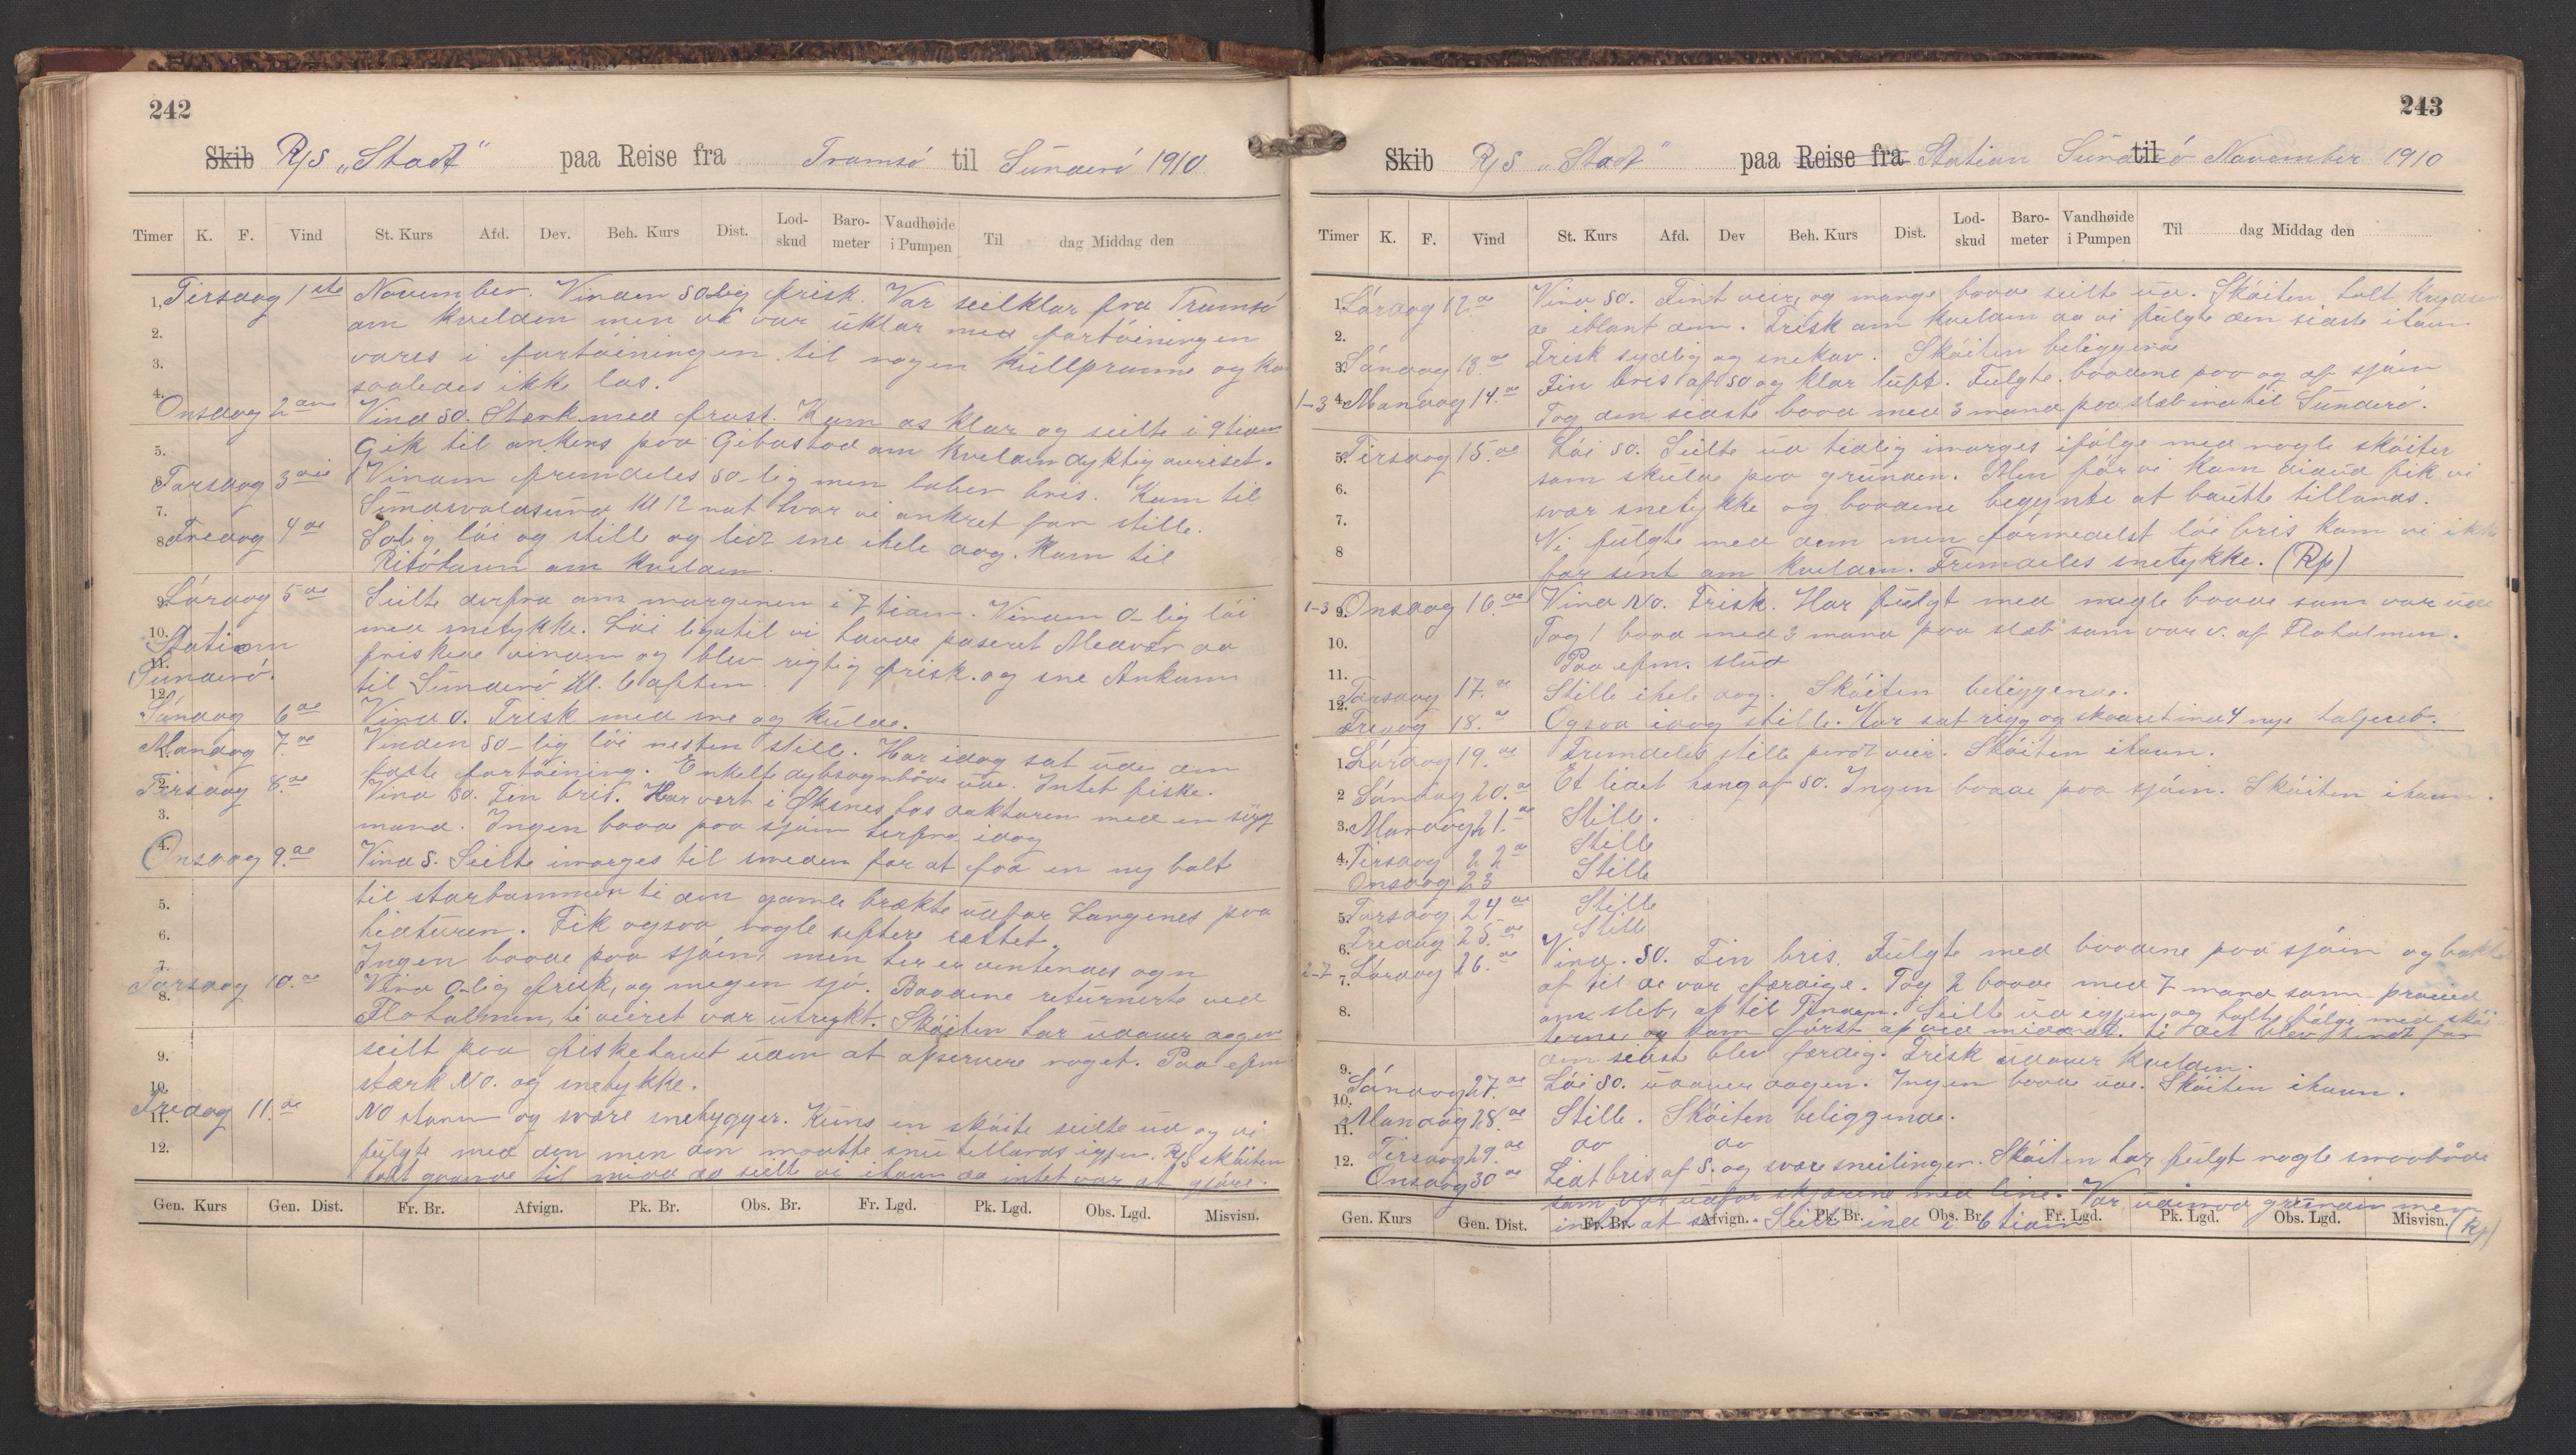 242
Skib R/S „Stadt" paa Reise fra Tromsó til Sunderó 1910
Timer K. F. Vind St. Kurs Afd. Dev. Beh. Kurs Dist. Lod-skud Baro-meter Vandhøide i Pumpen Til dag Middag den
1, Tirsdag 1ste November. Vinden SO-lig frisk. Var seilklar fra Tromsó
2. om kvelden men vi var uklar med fortöiningen
3. vores i fortöiningen til nogen kullpramme og kom
4. saaledes ikke los.
Onsdag 2an Vind SO. Stærk med frost. Kom os klar og seilte i 9tiden
5. Gik til ankers paa Gibostad om kvelden dyktig neriset.
Torsdag 3die Vinden fremdeles SO-lig men laber bris. Kom til
7. Sundsvoldsund Kl 12 nat hvor vi ankret for stille.
8. Fredag 4de Solig löi og stille og lidt sne ihele dag. Kom til
Risöhavn om kvelden.
9. Lördag 5de Seilte derfra om morgenen i 7 tiden. Vinden O-lig löi
10. Station med snetykke. Löi ligetil vi havde paseret Medvær da
11. Sunderó. friskede vinden og blev rigtig frisk. og sne Ankom
12. til Sunderó Kl. 6 aften.
Söndag 6de Vind O. Frisk med sne og kulde.
1. Mandag 7.de Vinden SO-lig löi nesten stille. Har idag sat ude den
faste fortöining. Enkelte dybsagnböde ude. Intet fiske.
2. Tirsdag 8.de Vind SO. Fin bris. Har vært i Øksnes hos doktoren med en syg
3. mand. Ingen baad paa sjöen herfra idag
4. Onsdag 9.de Vind S. Seilte imorges til smeden for at faa en ny bolt
5. til storbommen ti den gamle brækte udfor Langenes paa
6. hidturen. Fik ogsaa nogle septere rettet.
7. Ingen baade paa sjöen, men her er ventendes ogn
8. Torsdag 10.de Vind O-lig frisk, og megen sjö. Baadene returnerte ved
Floholmen, ti veiret var utrykt. Sköiten har udover dagen
9. seilt paa fiskehavet uden at opservere noget. Paa efm.
10. stærk NO. og snetykke.
11. Fredag 11.de NO storm og svære snebygger. Kuns en sköite seilte ud og vi
12. fulgte med den men den maatte snu tillands igjen. R/S sköiten
holdt gaaende til midd da seilte vi ihavn da intet var at gjöre.
Gen. Kurs Gen. Dist. Fr. Br. Afvign. Pk. Br. Obs. Br. Fr. Lgd. Pk. Lgd. Obs. Lgd. Misvisn.
243
Skib R/S „Stadt" paa Reise fra Station Sunderó til November 1910
Timer K. F. Vind St. Kurs Afd. Dev Beh. Kurs Dist. Lod-skud Baro-meter Vandhøide i Pumpen Til dag Middag den
1. Lördag 12.de Vind SO. Fint veir, og mange baade seilte ud. Sköiten holt krydsen
2. de iblant dem. Frisk om kvelden da vi fulgte den sidste ihavn
3. Söndag 13.de Frisk sydlig og snekav. Sköiten beliggende
1-3 4. Mandag 14.de Fin bris af SO og klar luft. Fulgte baadene paa og af sjöen
Tog den sidste baad med 3 mand paa slæb ind til Sunderó.
5. Tirsdag 15.de Löi SO. Seilte ud tidlig imorges ifölge med nogle sköiter
6. som skulde paa grunden. Men för vi kom didud fik vi
7. svær snetykke og baadene begynte at bautte tillands.
8 Vi fulgte med dem men formedelst löi bris kom vi ikke
för sent om kvelden. Fremdeles snetykke. (Rp)
1-3 9. Onsdag 16.de Vind NO. Frisk. Har fulgt med nogle baade som var ude
10. Tog 1 baad med 3 mand paa slæb som var v. af Floholmen.
11. Paa efm. slud
12. Torsdag 17.de Stille ihele dag. Sköiten beliggende.
Fredag 18.de Ogsaa idag stille. Har sat rigg og skaaret ind 4 nye taljereb.
1. Lördag 19.de Fremdeles stille veir. Sköiten ihavn.
2 Söndag 20.de Et lidet hang af SO. Ingen baade paa sjöen. Sköiten ihavn.
3. Mandag 21.de Stille.
4. Tirsdag 22de Stille
Onsdag 23 Stille
5. Torsdag 24de Stille
6. Fredag 25.de Stille
2-7 7. Lördag 26.de Vind. SO. Fin bris. Fulgte med baadene paa sjöen og bakte
af til de var færdige. Tog 2 baade med 7 mand som
8. om sleb, op til Tinden. Seilte ud igjen, og holt fölge med sköi
terne, og kom först op ved midnat. ti det blev sendt för
9. den sidste blev færdig. Frisk udover kvelden.
Söndag 27.de Löi SO. udover dagen. Ingen baade ude. Sköiten ihavn.
10. Mandag 28.de Stille. Sköiten beliggende.
11. Tirsdag 29.de do do
12. Onsdag 30de Lidt bris af S. og svære sneilinger. Sköiten har fulgt nogle smaabåde
som var udfor skjærene med line. Var udimod grunden men
intet at se. Seilte ind i 6 tiden (Rp)
Gen. Kurs Gen. Dist. Fr. Br. Afvign. Pk. Br. Obs. Br. Fr. Lgd. Pk. Lgd. Obs. Lgd. Misvisn.